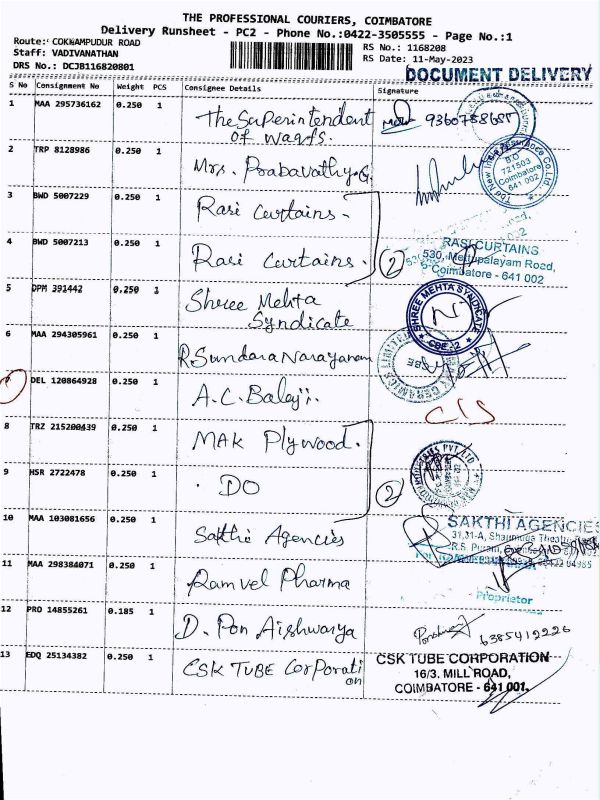 THE PROFESSIONAL COURIERS, COIMBATORE
Delivery Runsheet - PC2 - Phone No.:0422-3505555 - Page No.:1
Route: COKKAMPUDUR ROAD
RS No.: 1168208
Staff: VADIVANATHAN
RS Date: 11-May-2023
DRS No.: DCJB116820801
DOCUMENT DELIVERY
S No Consignment No Weight PCS Consignee Details Signature
1 MAA 295736162 0.250 1 The Superintendent of waqfs. 9360788685
2 TRP 8128986 0.250 1 Mrs. Prabavathy.G.
The New India Assurance Co.Ltd.
B.O
721503
Coimbatore
641 002
3 BWD 5007229 0.250 1 Rasi Curtains -
4 BWD 5007213 0.250 1 Rasi Curtains. 2
RASI CURTAINS
530, Mettupalayam Road,
Coimbatore - 641 002
5 DPM 391442 0.250 1 Shree Mehta Syndicate
SHREE MEHTA SYNDICATE
CBE-2
6 MAA 294305961 0.250 1 R Sundara Narayanan
7 DEL 120864928 0.250 1 A.C. Balaji. C/S
8 TRZ 215200439 0.250 1 MAK Plywood.
9 HSR 2722478 0.250 1 DO 2
10 MAA 103081656 0.250 1 Sakthi Agencies
SAKTHI AGENCIES
31,31-A, Shanmuga Theatre
R.S. Puram,
11 MAA 298384071 0.250 1 Ramvel Pharma
Proprietor
12 PRO 14855261 0.185 1 D. Pon Aishwarya 6385412226
13 EDQ 25134382 0.250 1 CSK TUBE Corporation
CSK TUBE CORPORATION
16/3. MILL ROAD,
COIMBATORE - 641 001.